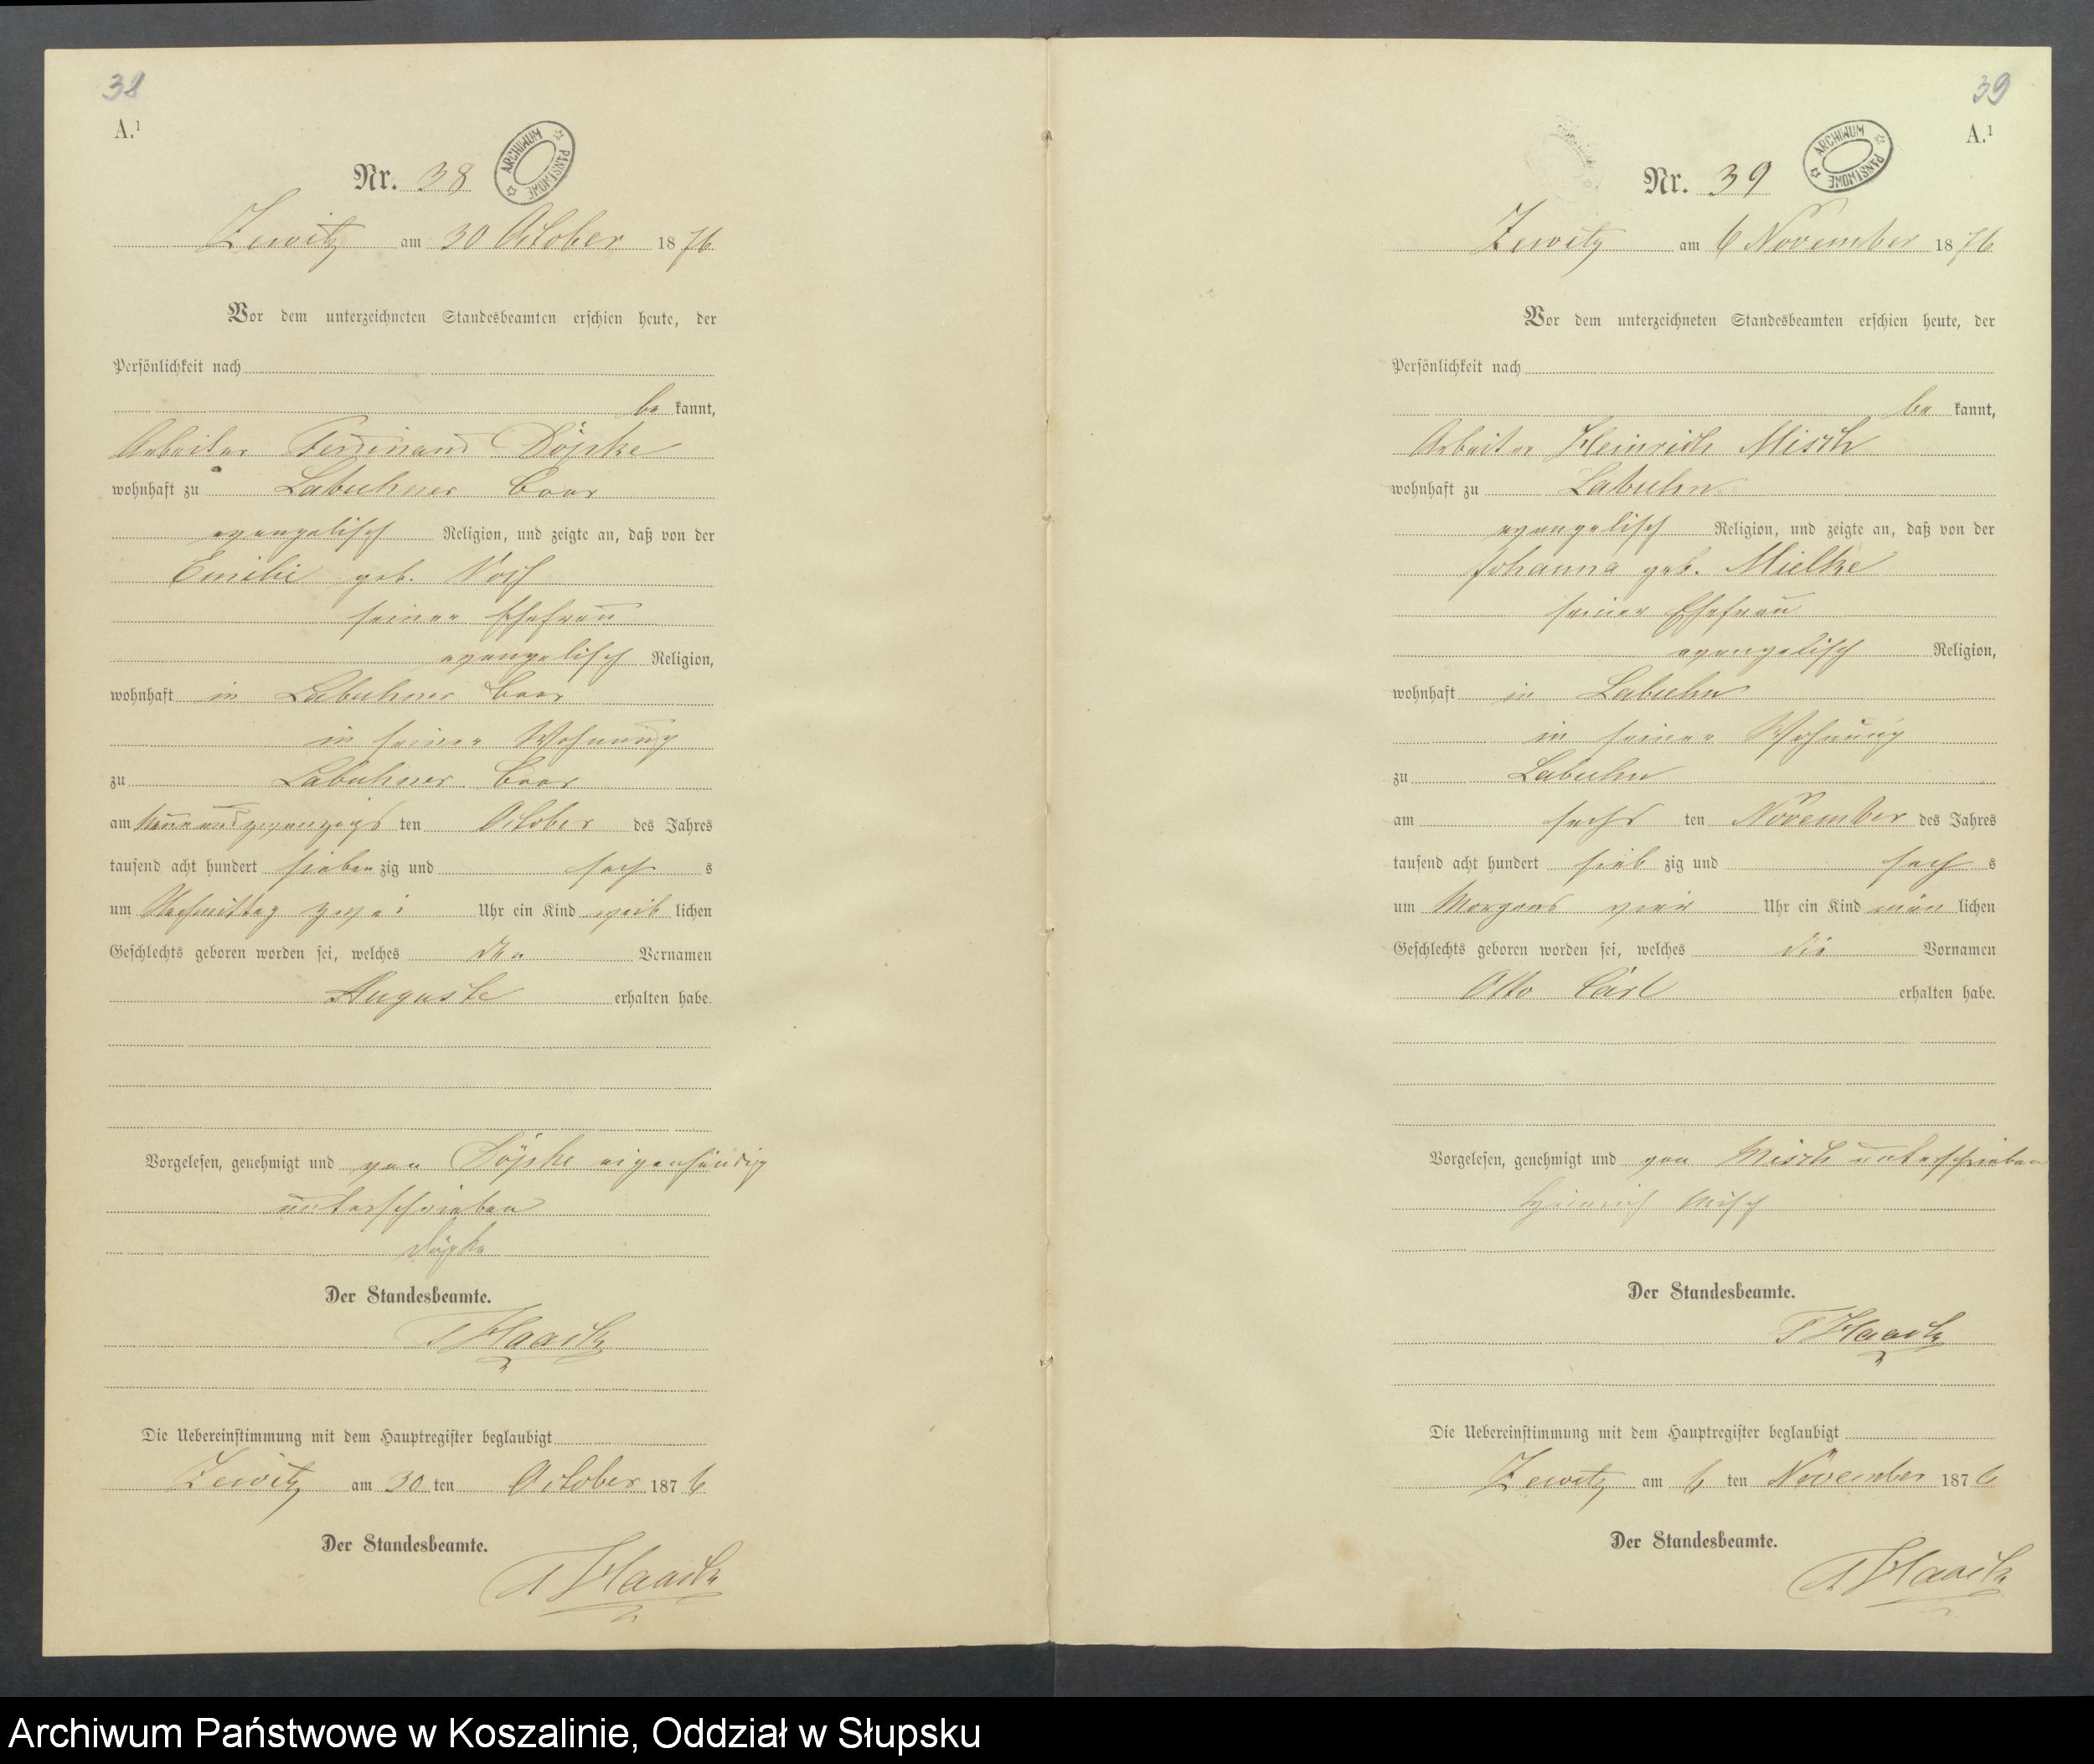 38
A.¹
Nr. 38
ARCHIWUM PAŃSTWOWE
Zewitz am 30 October 1876
Vor dem unterzeichneten Standesbeamten erschien heute, der
Persönlichkeit nach
be kannt,
Arbeiter Ferdinand Döpke
wohnhaft zu Labuhner
evangelisch Religion, und zeigte an, daß von der
Emilie geb.
seiner Ehefrau
evangelisch Religion,
wohnhaft in Labuhner
in seiner Wohnung
zu Labuhner
am ten October des Jahres
tausend acht hundert sieben zig und sech s
um Nachmittag zwei Uhr ein Kind weib lichen
Geschlechts geboren worden sei, welches den Vornamen
Auguste erhalten habe.
Vorgelesen, genehmigt und von Döpke eigenhändig
unterschrieben
Döpke
Der Standesbeamte.
Haack
Die Uebereinstimmung mit dem Hauptregister beglaubigt
Zewitz am 30 ten October 1876
Der Standesbeamte.
Haack
39
A.¹
Nr. 39
ARCHIWUM PAŃSTWOWE
Zewitz am 6 November 1876
Vor dem unterzeichneten Standesbeamten erschien heute, der
Persönlichkeit nach
be kannt,
Arbeiter Heinrich Misch
wohnhaft zu Labuhn
evangelisch Religion, und zeigte an, daß von der
Johanna geb. Mielke
seiner Ehefrau
evangelisch Religion,
wohnhaft in Labuhn
in seiner Wohnung
zu Labuhn
am sechs ten November des Jahres
tausend acht hundert sieb zig und sech s
um Morgens vier Uhr ein Kind män lichen
Geschlechts geboren worden sei, welches die Vornamen
Otto Carl erhalten habe.
Vorgelesen, genehmigt und von Misch unterschrieben
Heinrich Misch
Der Standesbeamte.
Haack
Die Uebereinstimmung mit dem Hauptregister beglaubigt
Zewitz am 6 ten November 1876
Der Standesbeamte.
Haack
Archiwum Państwowe w Koszalinie, Oddział w Słupsku